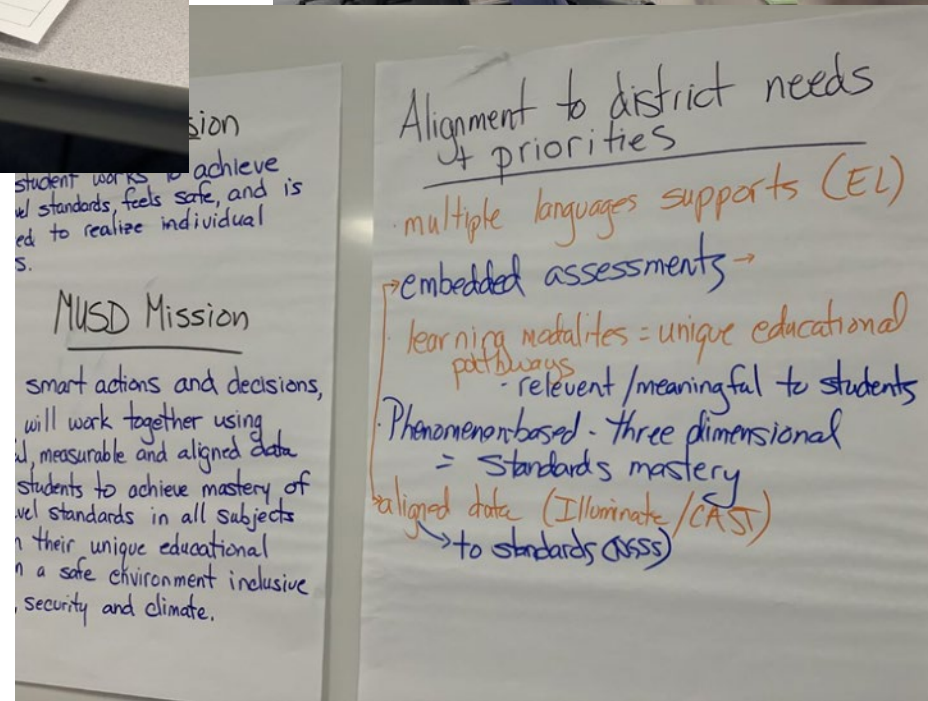 sion
student works to achieve
vel standards, feels safe, and is
ed to realize individual
s.
MUSD Mission
smart actions and decisions,
will work together using
measurable and aligned data
students to achieve mastery of
vel standards in all subjects
their unique educational
a safe environment inclusive
security and climate.
Alignment to district needs
+ priorities
· multiple languages supports (EL)
→embedded assessments→
· learning modalites = unique educational
pathways
- relevent/meaningful to students
· Phenomenon-based - three dimensional
= Standards mastery
→aligned data (Illuminate/CAST)
→to standards (NGSS)